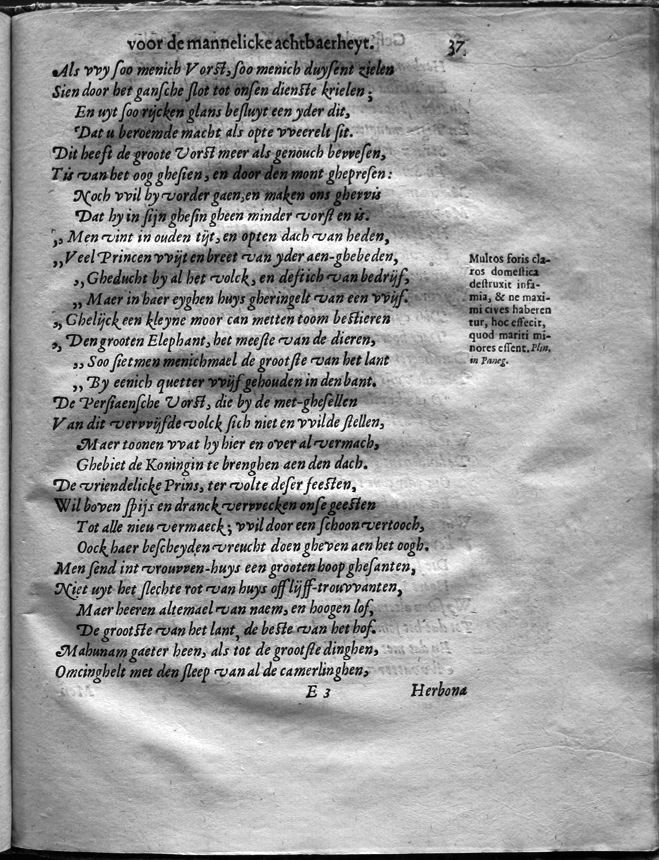 voor de mannelicke achtbaerheyt. 37
Als vvy soo menich Vorst, soo menich duysent zielen
Sien door het gansche slot tot onsen dienste krielen;
En uyt soo rijcken glans besluyt een yder dit,
Dat u beroemde macht als opte vveerelt sit.
Dit heeft de groote Vorst meer als genouch bevvesen,
Tis van het oog ghesien, en door den mont ghepresen:
Noch vvil hy vorder gaen, en maken ons ghevvis
Dat hy in sijn ghesin gheen minder vorst en is.
„ Men vint in ouden tijt, en opten dach van heden,
„ Veel Princen vvijt en breet van yder aen-ghebeden,
„ Gheducht by al het volck, en deftich van bedrijf,
„ Maer in haer eyghen huys gheringelt van een vvijf.
„ Ghelijck een kleyne moor can metten toom bestieren
„ Den grooten Elephant, het meeste van de dieren,
„ Soo sietmen menichmael de grootste van het lant
„ By eenich quetter vvijf gehouden in den bant.
De Persiaensche Vorst, die by de met-ghesellen
Van dit vervvijfde volck sich niet en vvilde stellen,
Maer toonen vvat hy hier en over al vermach,
Ghebiet de Koningin te brenghen aen den dach.
De vriendelicke Prins, ter volte deser feesten,
Wil boven spijs en dranck vervvecken onse geesten
Tot alle nieu vermaeck; vvil door een schoon vertooch,
Oock haer bescheyden vreucht doen gheven aen het oogh.
Men send int vrouvven-huys een grooten hoop ghesanten,
Niet uyt het slechte rot van huys of lijff-trouvvanten,
Maer heeren altemael van naem, en hoogen lof,
De grootste van het lant, de beste van het hof.
Mahunam gaeter heen, als tot de grootste dinghen,
Omcinghelt met den sleep van al de camerlinghen,
E 3 Herbona
Multos foris cla-
ros domestica
destruxit infa-
mia, & ne maxi-
mi cives haberen
tur, hoc effecit,
quod mariti mi-
nores essent. Plin.
in Paneg.